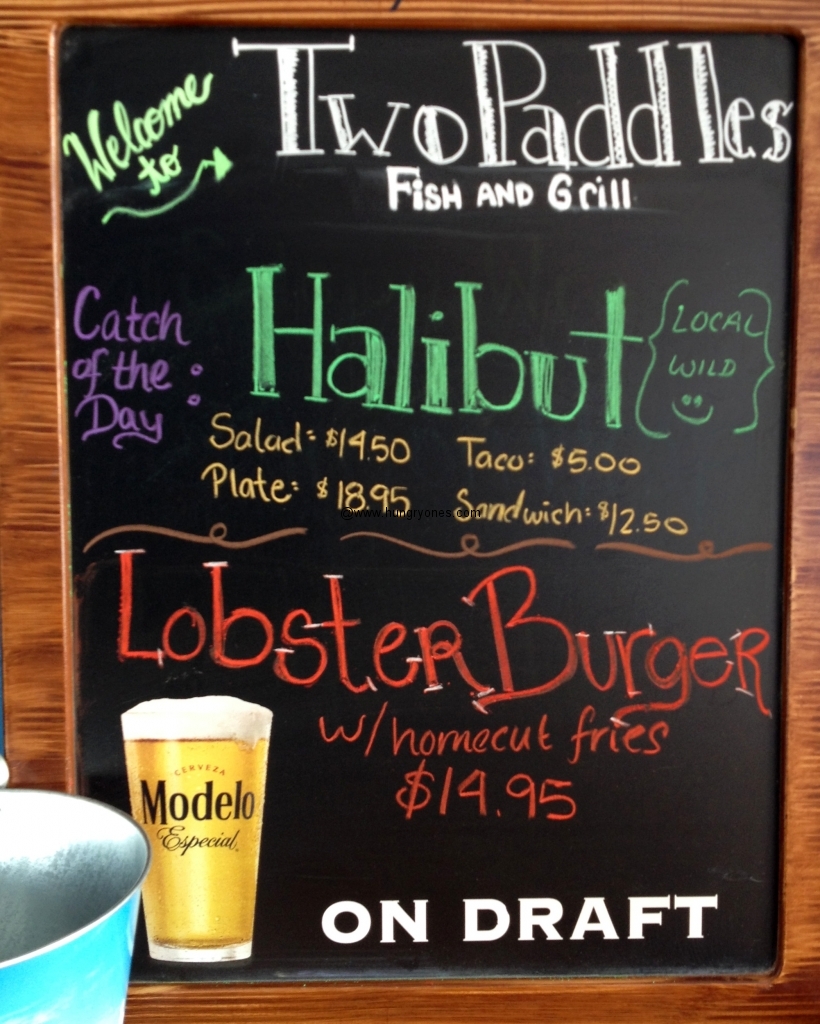 Welcome
to
Two Paddles
Fish and Grill
Catch
of the
Day:
Halibut
{LOCAL
WILD}
Salad: $14.50 Taco: $5.00
Plate: $18.95 Sandwich: $12.50
©www.hungryones.com
Lobster Burger
w/homecut fries
$14.95
CERVEZA
Modelo
Especial
ON DRAFT